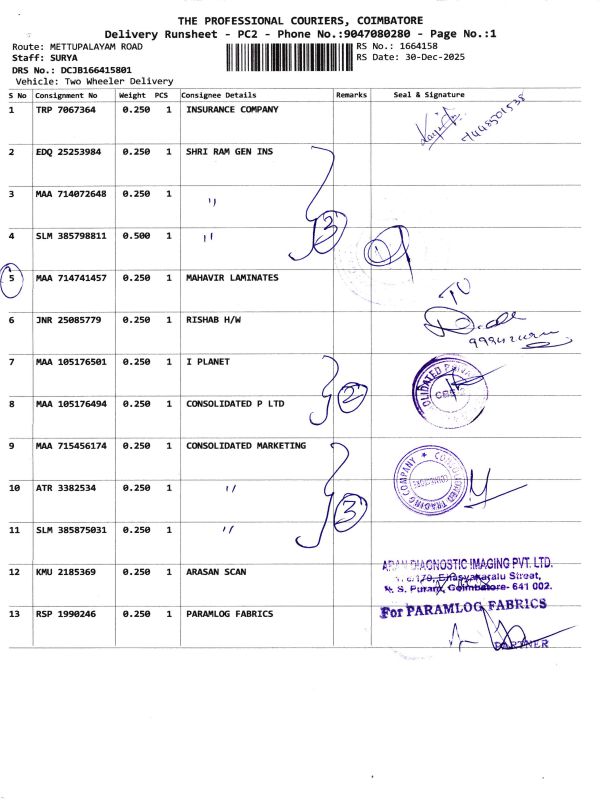 THE PROFESSIONAL COURIERS, COIMBATORE
Delivery Runsheet - PC2 - Phone No.:9047080280 - Page No.:1
Route: METTUPALAYAM ROAD RS No.: 1664158
Staff: SURYA RS Date: 30-Dec-2025
DRS No.: DCJB166415801
Vehicle: Two Wheeler Delivery
S No Consignment No Weight PCS Consignee Details Remarks Seal & Signature
1 TRP 7067364 0.250 1 INSURANCE COMPANY
2 EDQ 25253984 0.250 1 SHRI RAM GEN INS
3 MAA 714072648 0.250 1 "
3
4 SLM 385798811 0.500 1 "
5 MAA 714741457 0.250 1 MAHAVIR LAMINATES
6 JNR 25085779 0.250 1 RISHAB H/W
7 MAA 105176501 0.250 1 I PLANET
2
8 MAA 105176494 0.250 1 CONSOLIDATED P LTD
9 MAA 715456174 0.250 1 CONSOLIDATED MARKETING
CONSOLIDATED TRADING COMPANY
10 ATR 3382534 0.250 1 "
3
11 SLM 385875031 0.250 1 "
12 KMU 2185369 0.250 1 ARASAN SCAN
DIAGNOSTIC IMAGING PVT. LTD.
Street,
R. S. Puram, Coimbatore- 641 002.
13 RSP 1990246 0.250 1 PARAMLOG FABRICS
For PARAMLOG FABRICS
PARTNER